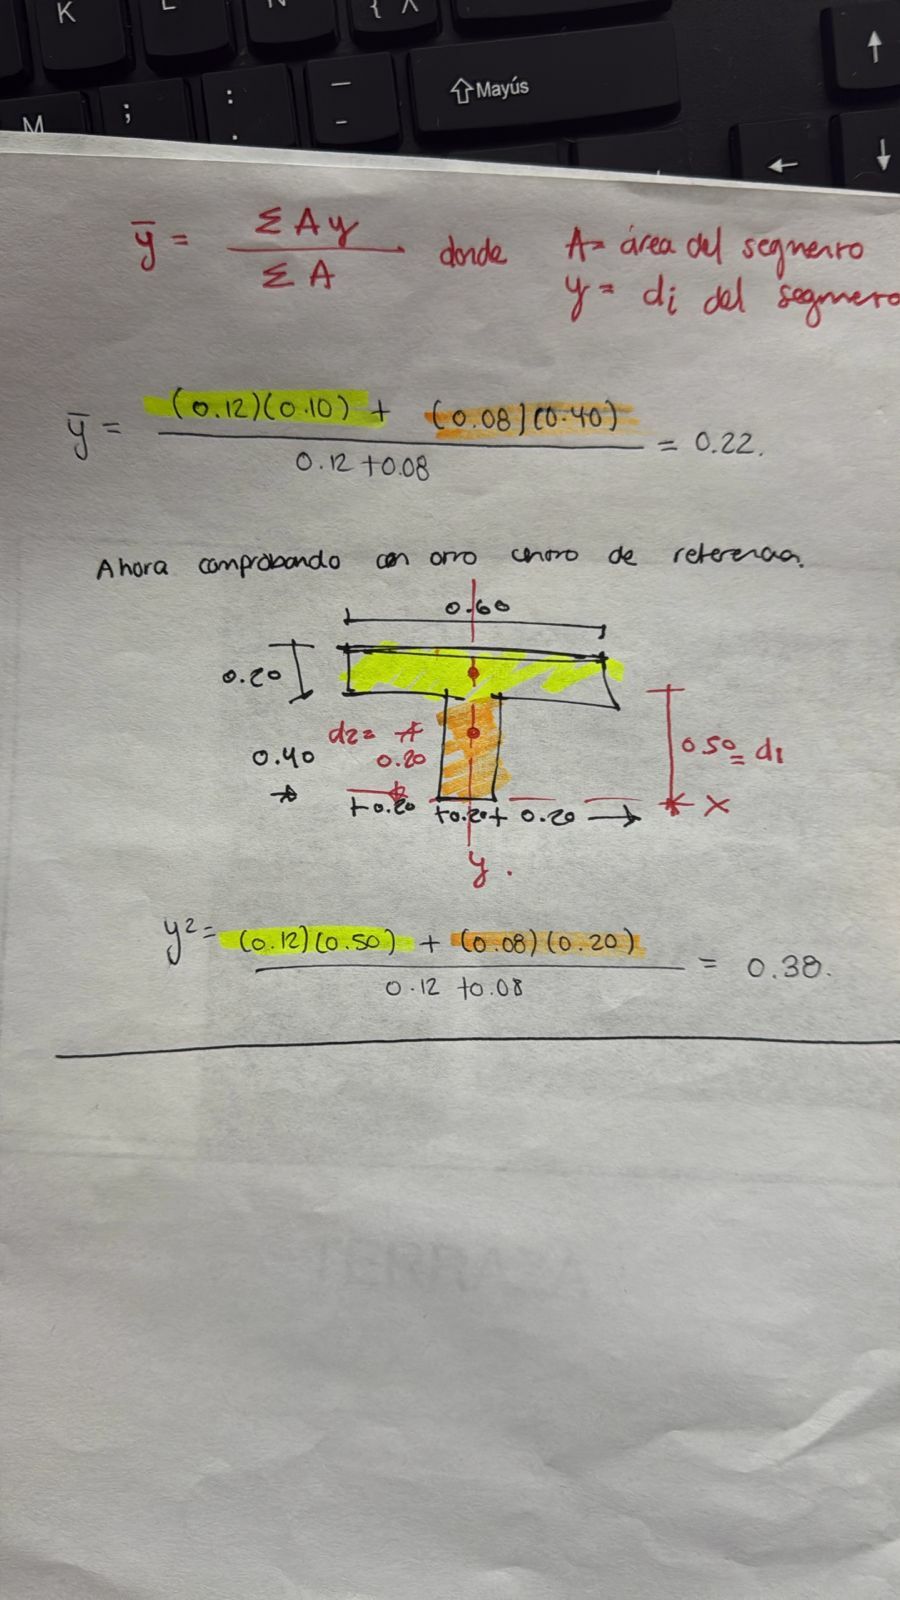 K L N { ^
M ; : _ Mayús ↑
. - ← ↓
ȳ = Σ A y / Σ A donde A = área del segmento
y = di del segmento
ȳ = (0.12)(0.10) + (0.08)(0.40) / 0.12 + 0.08 = 0.22.
Ahora comprobando con otro centro de referencia.
0.60
0.20
d2 =
0.40 0.20 0.50 = d1
+0.20 +0.20+ 0.20 → X
y.
y² = (0.12)(0.50) + (0.08)(0.20) / 0.12 + 0.08 = 0.38.